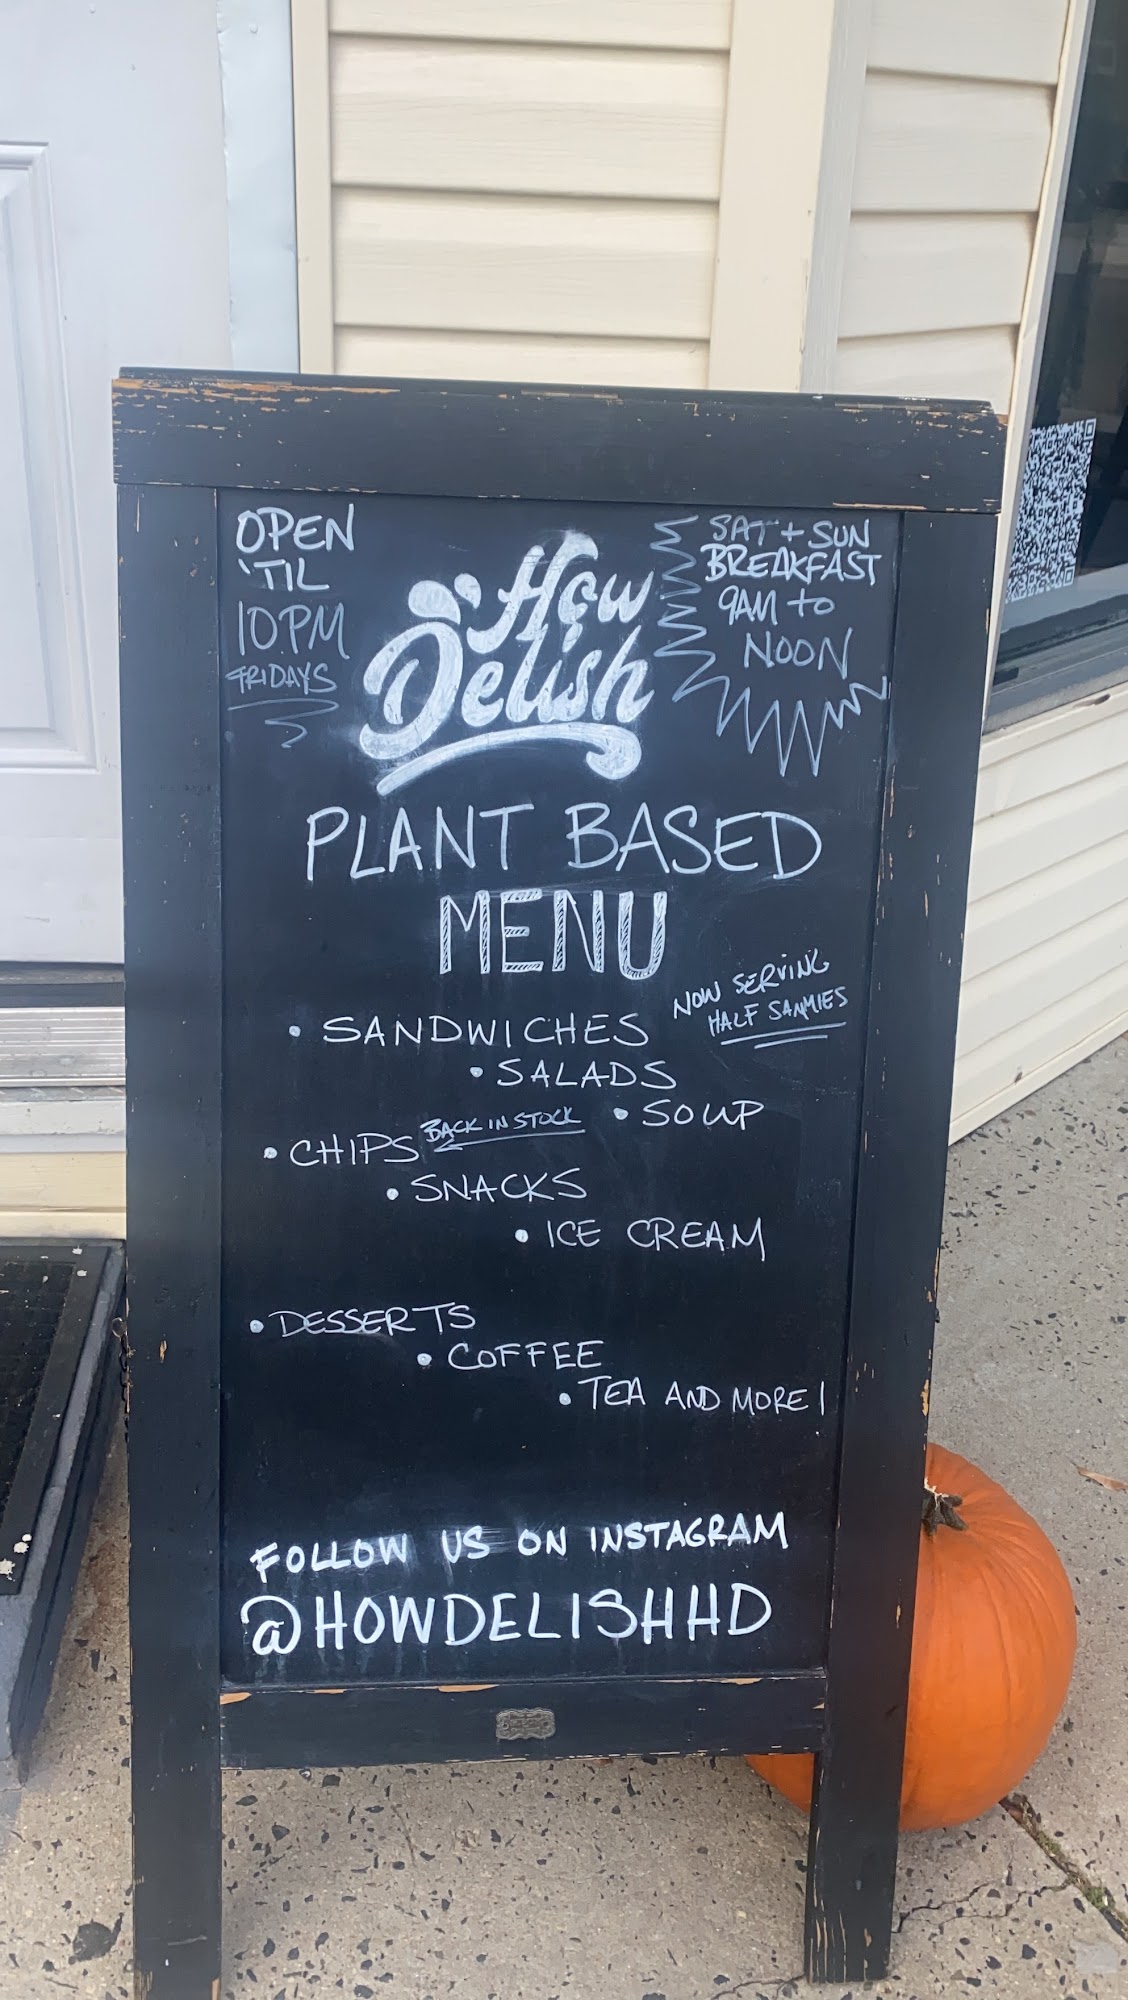 OPEN
'TIL
10PM
FRIDAYS
How
Delish
SAT + SUN
BREAKFAST
9AM to
NOON
PLANT BASED
MENU
NOW SERVING
HALF SAMMIES
• SANDWICHES
• SALADS
• SOUP
• CHIPS BACK IN STOCK
• SNACKS
• ICE CREAM
• DESSERTS
• COFFEE
• TEA AND MORE!
FOLLOW US ON INSTAGRAM
@HOWDELISHHD